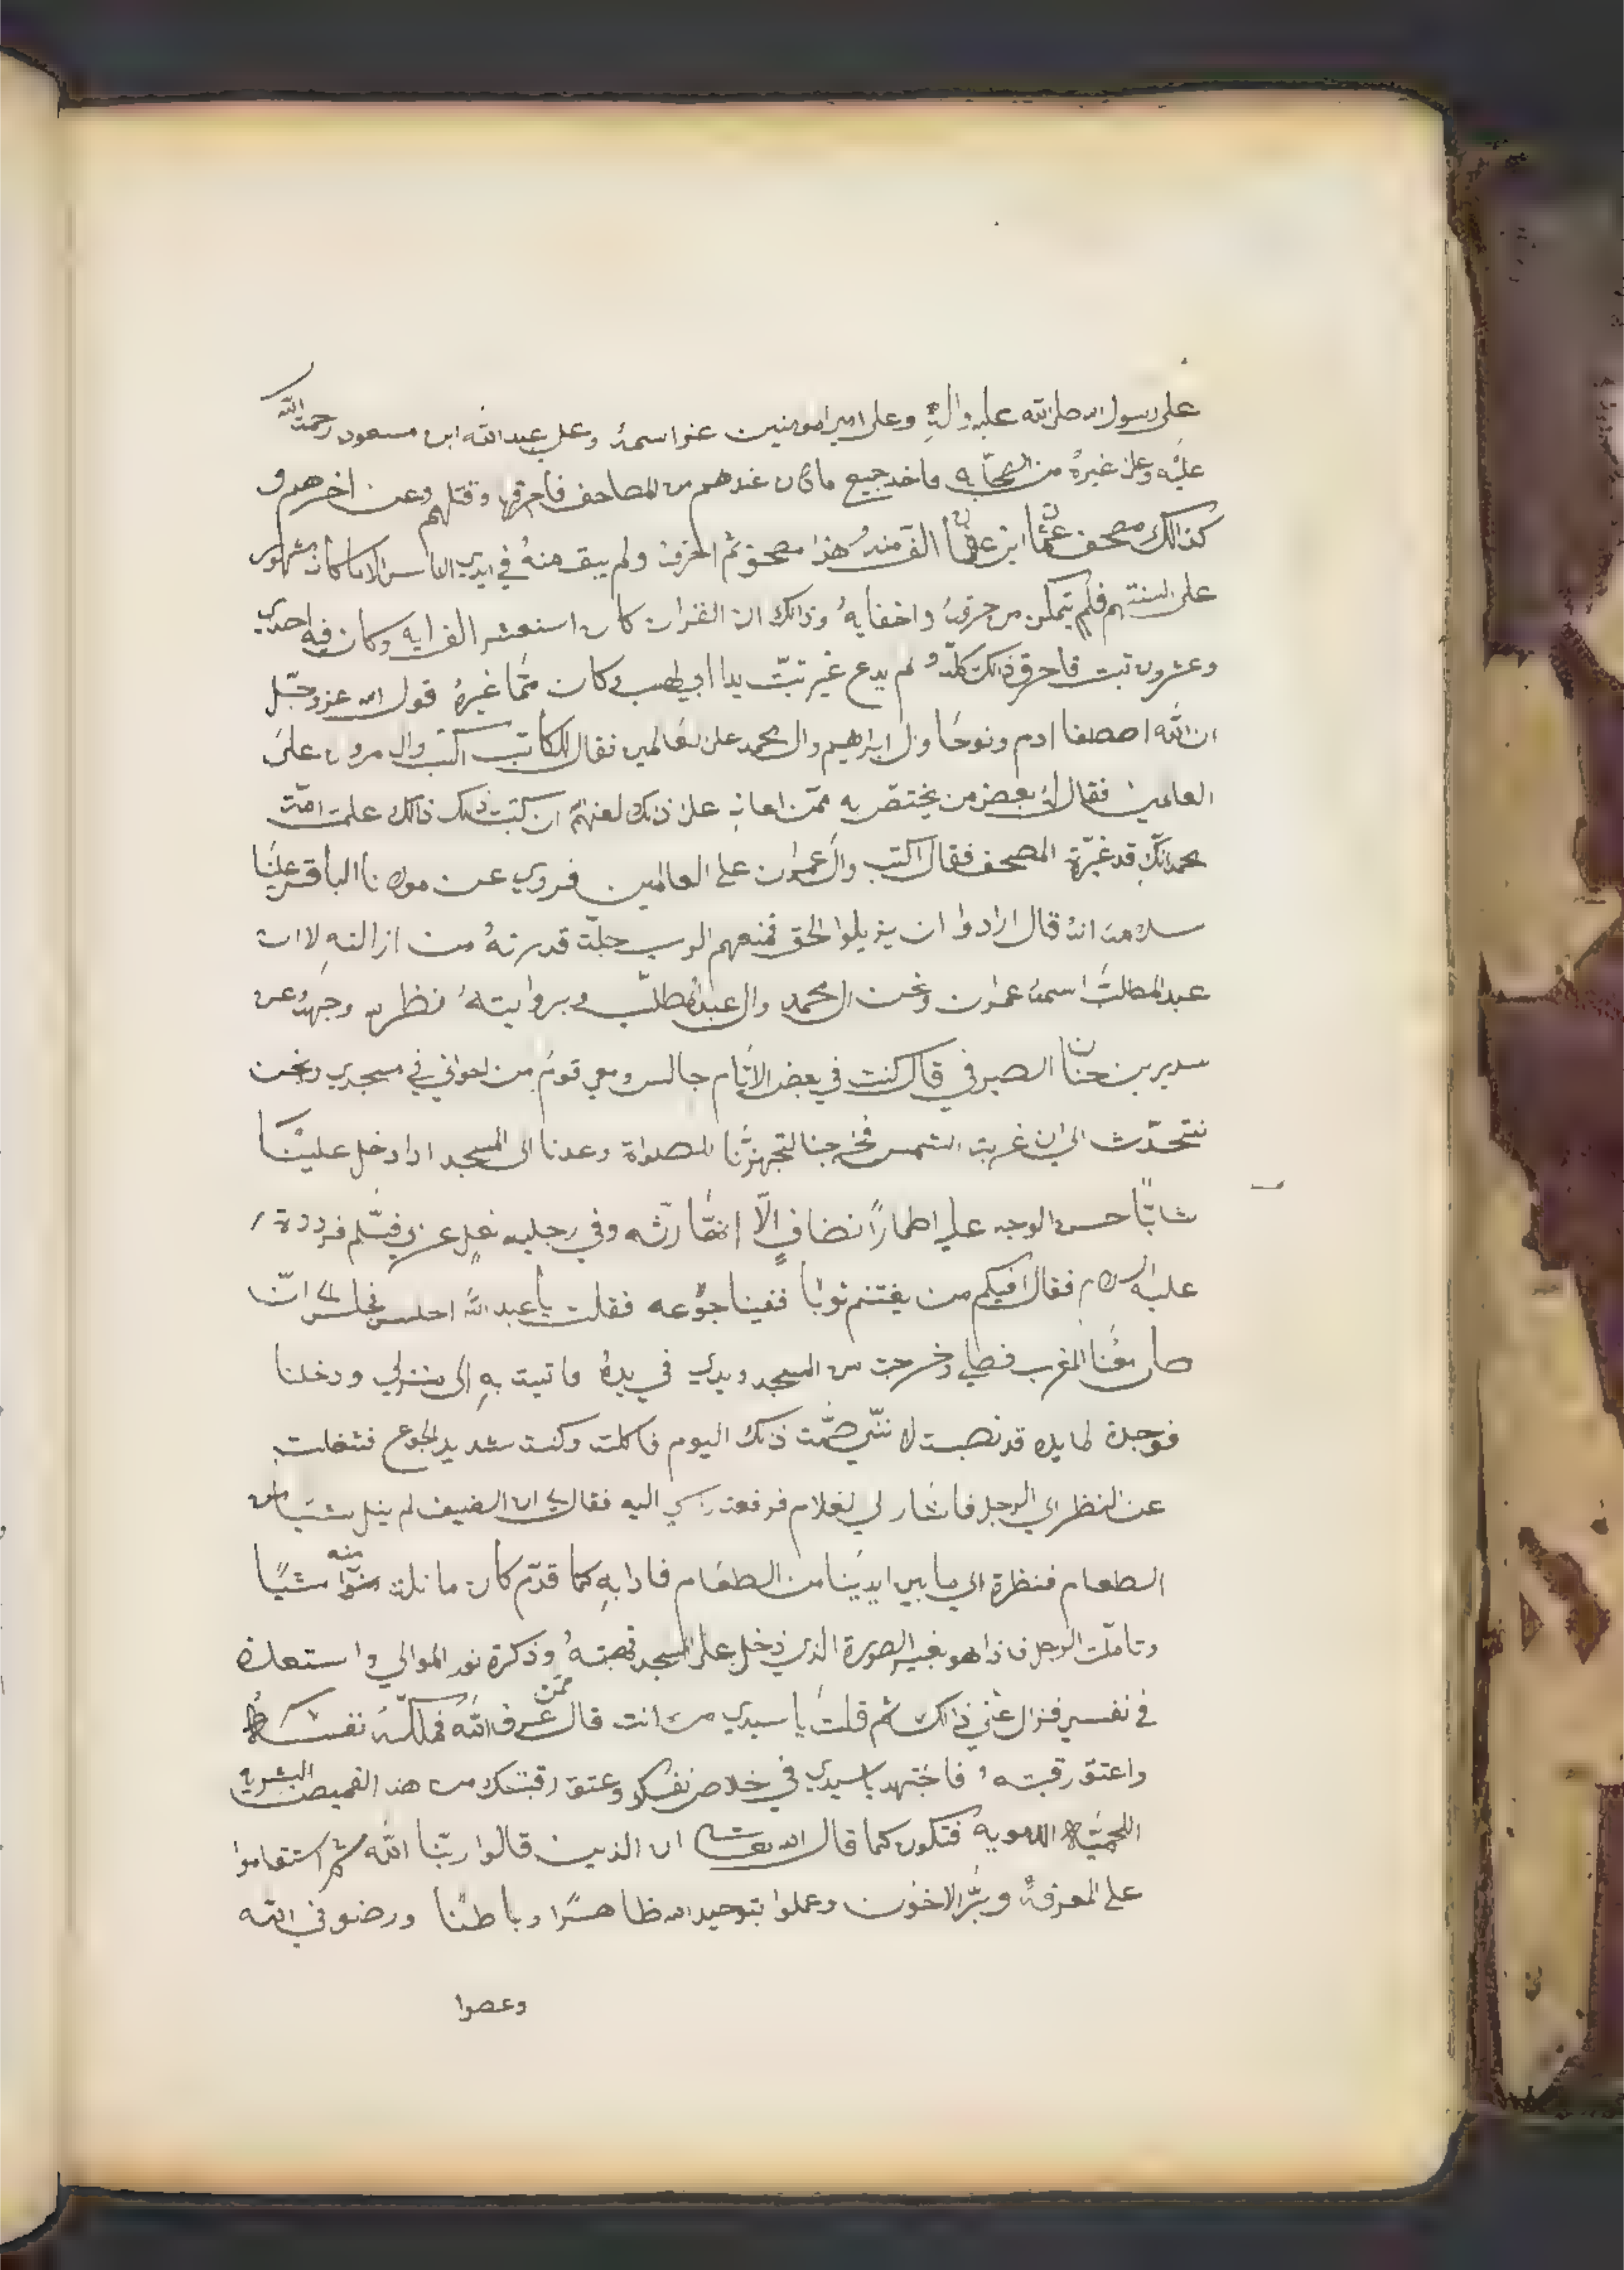 على رسول الله صلى الله عليه واله وعلى امير المومنين عز اسمه وعلى عبد الله ابن مسعود رحمة الله
عليه وعلى غيره من الصحابه واخد جميع ما كان عندهم من المصاحف فاحرقها وقتلهم وعن اخرهم و
كذالك مصحف عثمان ابن عفان الف منه هذا مصحف ثم احرقه ولم يبق منه في ايدي الناس الا ما كان مشهور
على السنتهم فلم يتمكن من حرقه واخفايه وذالك ان القران كان الف ايه وكان فيه احدى
وعشرون تبت فاحرق ذالك كله ولم يدع غير تبت يدا ابي لهب وكان مما غيره قول الله عز وجل
ان الله اصطفا ادم ونوحا وال ابراهيم وال محمد على العالمين فقال للكاتب اكتب وال مروان على
العالمين فقال له بعض من يختص به ممن اعانه على ذلك لعنهم ان كتبت ذلك علمت امة
محمد انك قد غيرة المصحف فقال اكتب وال عمران على العالمين فروي عن مولانا الباقر علينا
سلامه انه قال ارادوا ان يزيلوا الحق فمنعهم الرب جلت قدرته من ازالته لان
عبد المطلب اسمه عمران ونحن ال محمد وال عبد المطلب وبروايته نظر الله وجهه عن
سدير بن حنان الصيرفي قال كنت في بعض الايام جالس ومعي قوم من اخواني في مسجدي ونحن
نتحدث الى ان غربت الشمس فخرجنا لتجهزنا للصلواة وعدنا الى المسجد ادا دخل علينا
شابا حسن الوجه عليه اطمارا نضاف الا انها رثه وفي رجليه نعل عربي فسلم فرددة
عليه السلام فقال افيكم من يغتنم ثوبا ففينا جوعه فقلت يا عبد الله اجلس فجلس الى ان
صلى معنا المغرب فصلى وخرجت من المسجد ويدي في يده واتيت به الى منزلي ودخلنا
فوجدة المايده قد نصبت لانني صمت ذلك اليوم فاكلت وكنت شديد الجوع فشغلت
عن النظر الى الرجل فاشار لي لغلام فرفعت راسي اليه فقال لي ان الضيف لم ينل شيا من
الطعام فنظرة الى ما بين ايدينا من الطعام فادا به كما قدم كان ما نلت منه شيا
وتاملت الرجل فاذا هو بغير الصورة الذي دخل على المسجد فهبته وذكرة نور الموالي واستعدة
في نفسي فزال عني ذالك ثم قلت يا سيدي من انت قال ممن عرف الله فملكه نفسه
واعتق رقبته فاجتهد يا سيدي في خلاص نفسك وعتق رقبتك من هذ القميص البشريه
اللحميه الدمويه فتكون كما قال الله تعالى ان الذين قالوا ربنا الله ثم استقاموا
على المعرفة وبر الاخون وعملوا بتوحيد الله ظاهرا وباطنا ورضو في الله
وعصوا